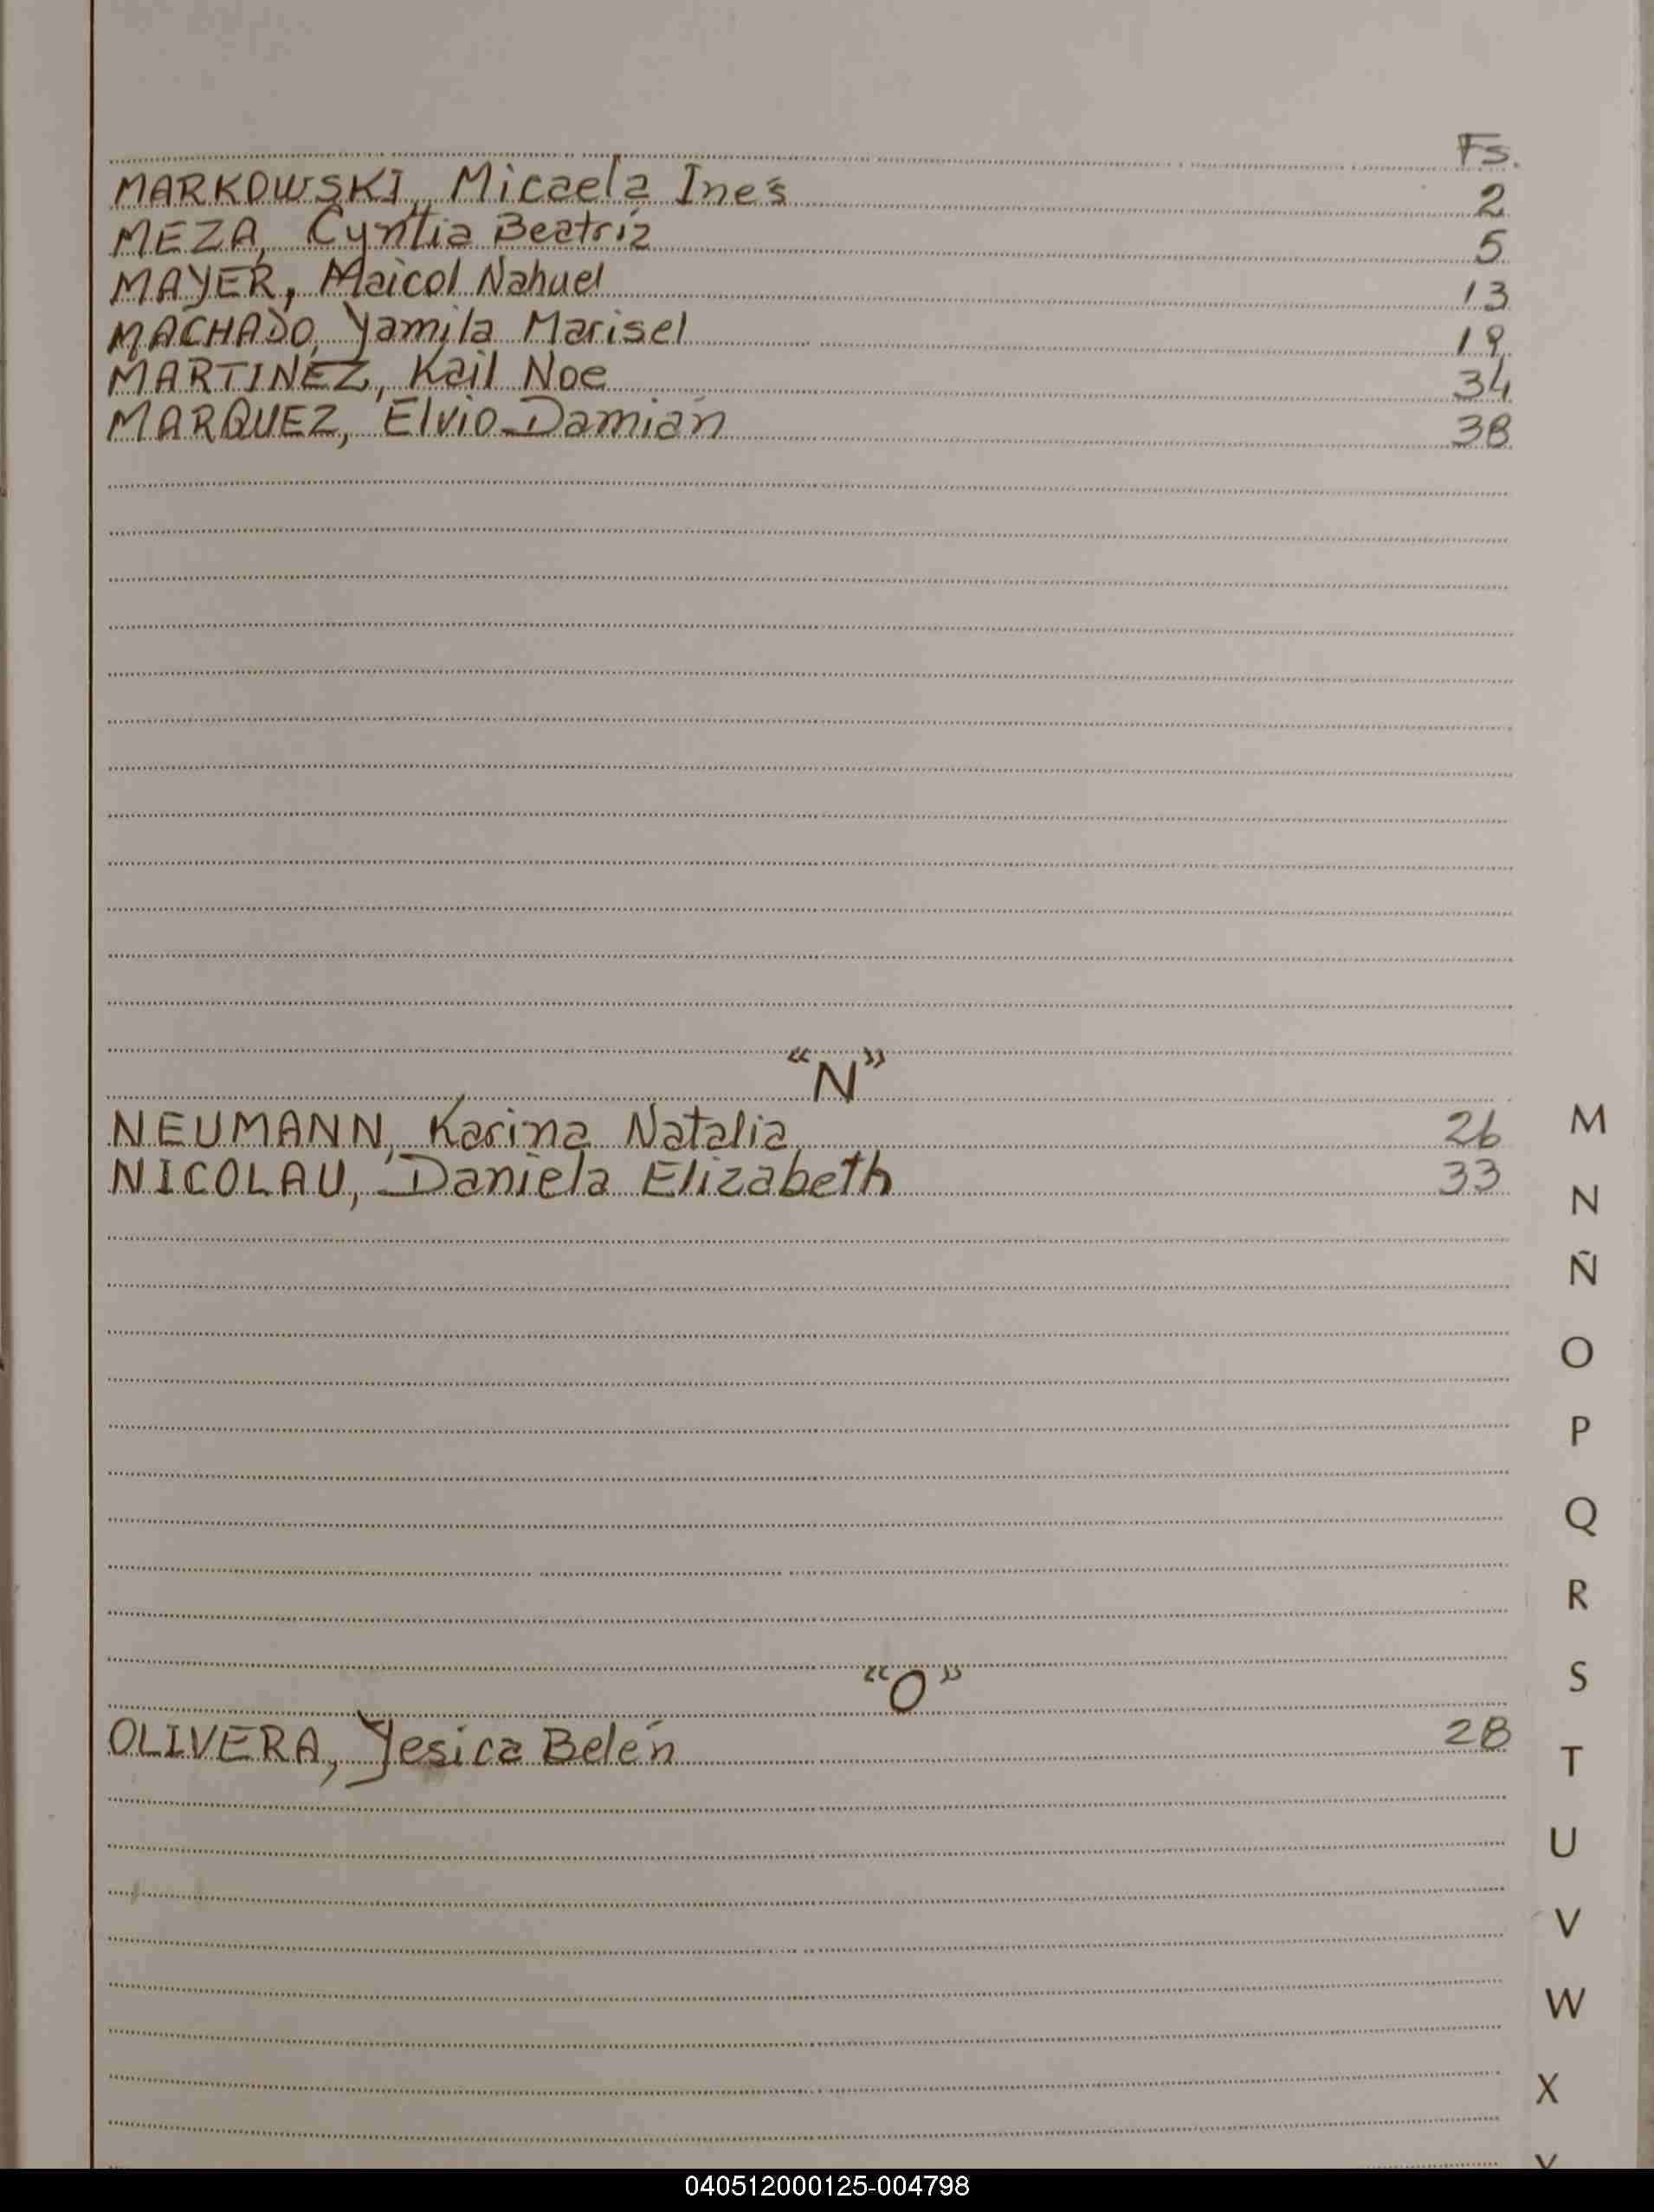 Fs.
MARKOWSKI, Micaela Inés 2
MEZA, Cyntia Beatriz 5
MAYER, Maicol Nahuel 13
MACHADO, Yamila Marisel 19
MARTINEZ, Kail Noe 34
MARQUEZ, Elvio Damián 38
“N”
NEUMANN, Karina Natalia 26
NICOLAU, Daniela Elizabeth 33
“O”
OLIVERA, Yesica Belén 28
M
N
Ñ
O
P
Q
R
S
T
U
V
W
X
040512000125-004798